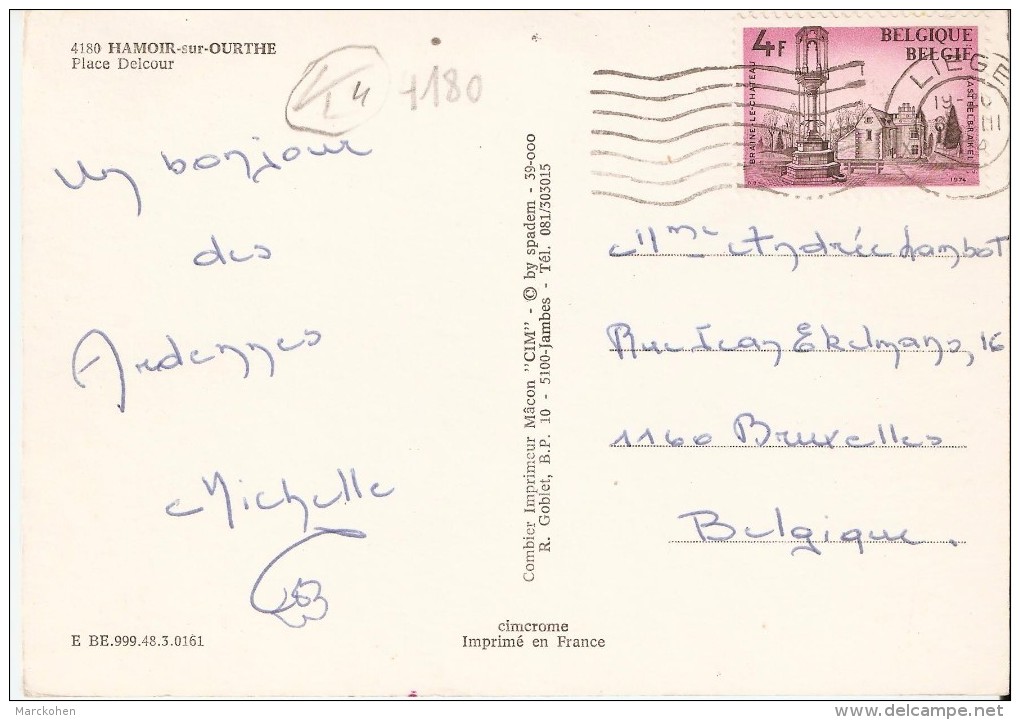 4180 HAMOIR-sur-OURTHE
Place Delcour
4180
Un bonjour
des
Ardennes
Michelle
E BE.999.48.3.0161
Combier Imprimeur Mâcon "CIM" - © by spadem - 39-000
R. Goblet, B.P. 10 - 5100-Jambes - Tél. 081/303015
cimcrome
Imprimé en France
4F
BELGIQUE
BELGIË
BRAINE-LE-CHATEAU
KASTEELBRAKEL
1974
LIEGE
Mme Andrée Lambot
Rue Jean Ekelmans, 16
1160 Bruxelles
Belgique.
Marckohen
delcampe.net